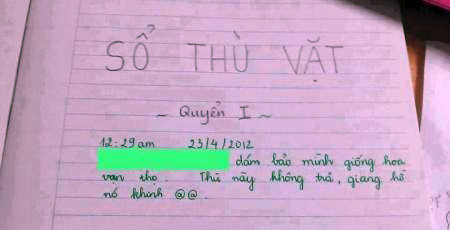 SỔ THÙ VẶT
~ Quyển I ~
12:29am 23/4/2012
dám bảo mình giống hoa
vạn thọ. Thù này không trả, giang hồ
nó khinh @@.